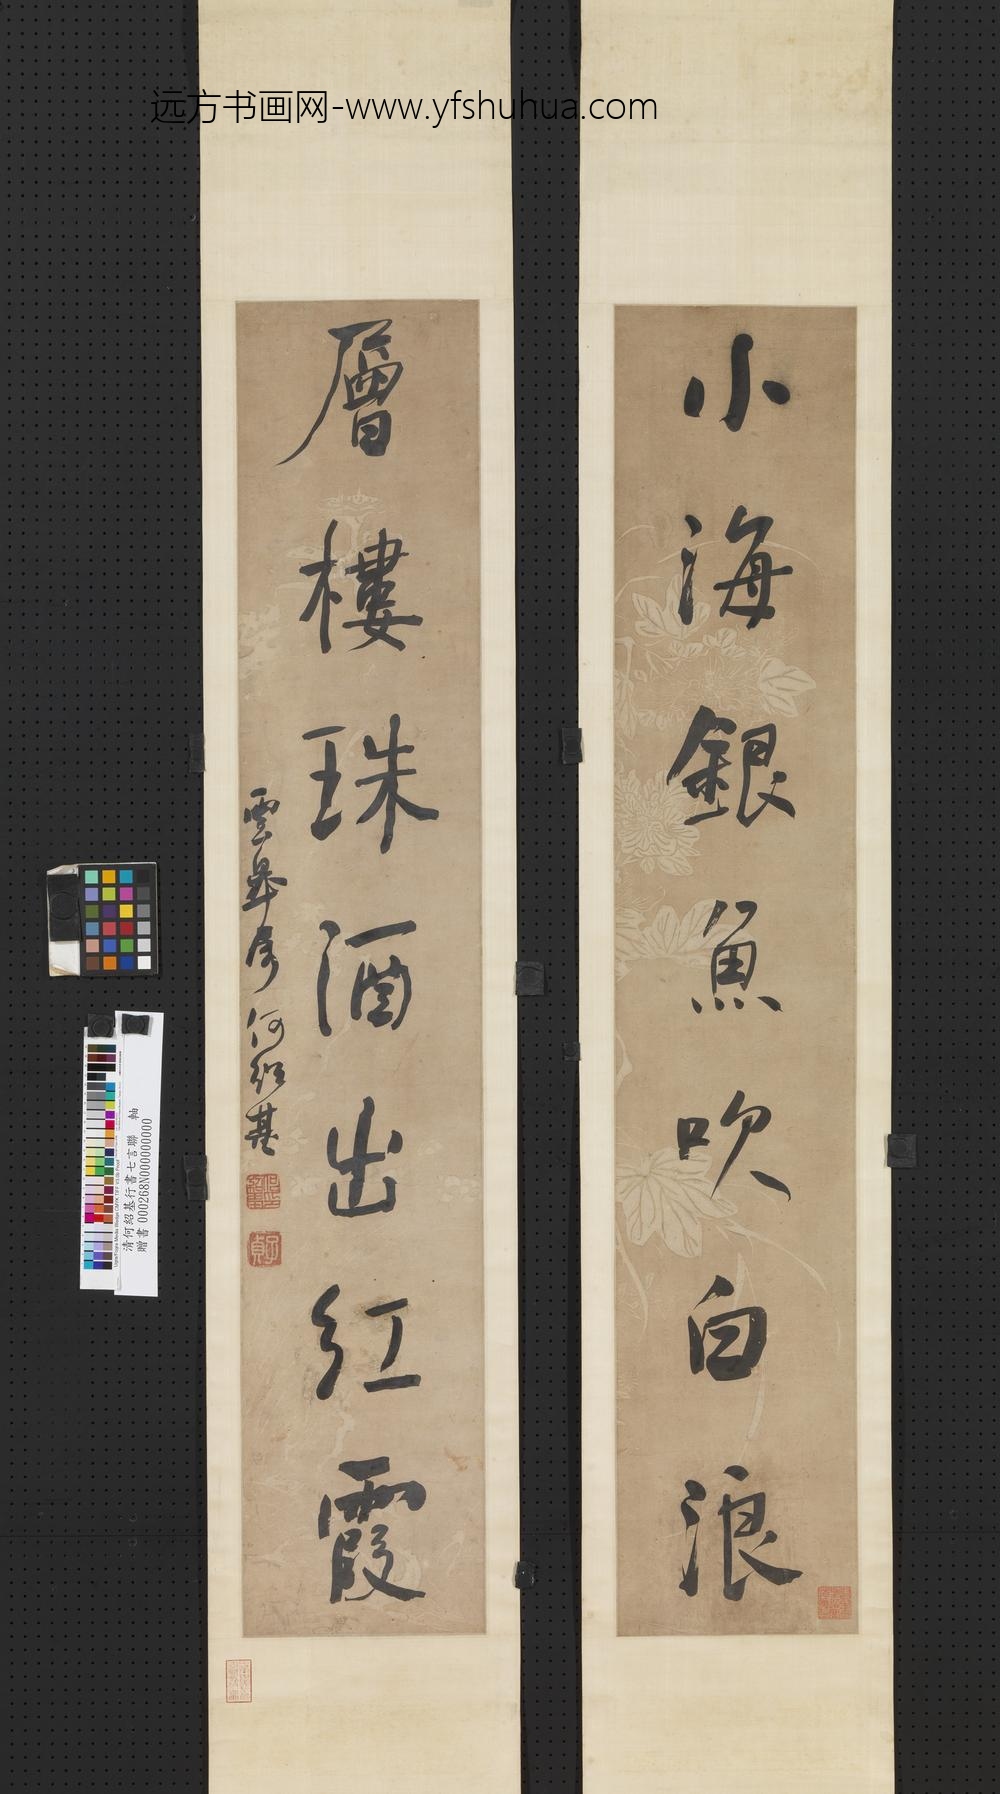 远方书画网-www.yfshuhua.com
小海銀魚吹白浪
層樓珠酒出紅霞
何紹基
清何紹基行書七言聯　軸
贈書 000268N000000000